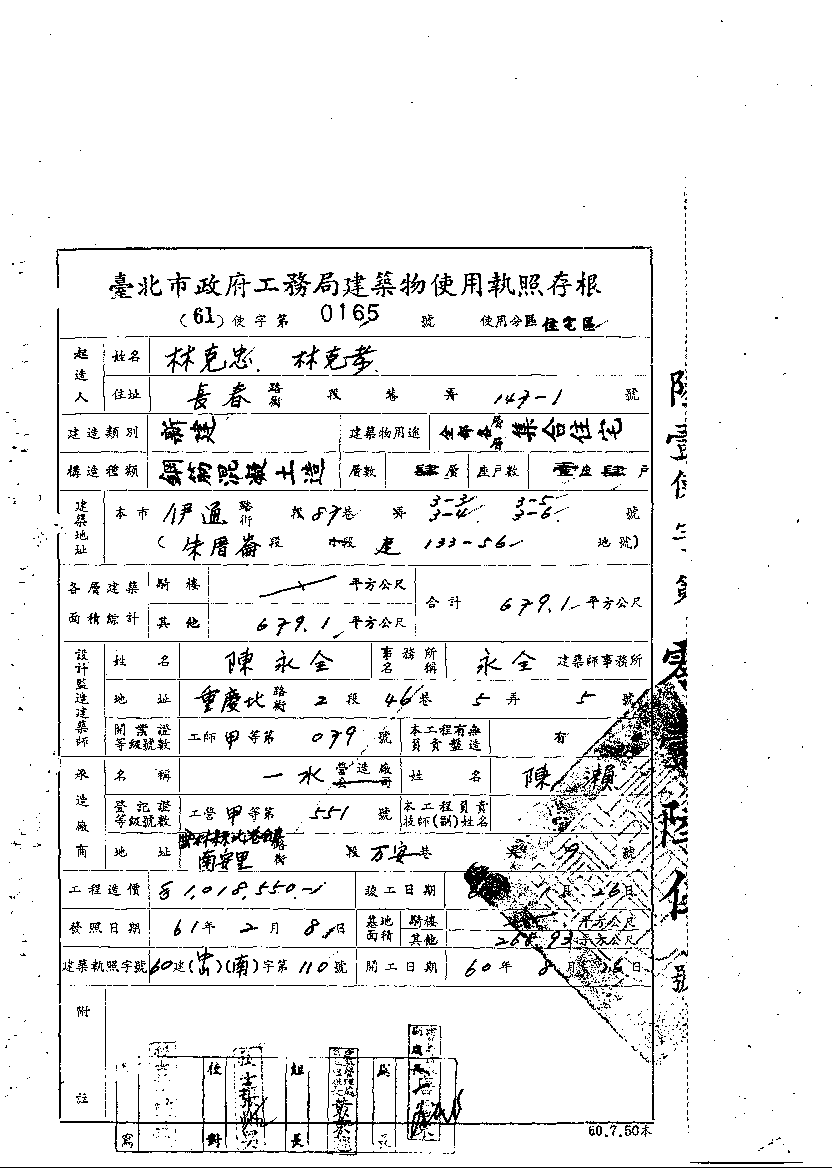 臺北市政府工務局建築物使用執照存根
(61)使字第 0165 號 使用分區 住宅區
起造人 姓名 林克忠 林克孝
住址 長春 路街 段 巷 弄 147-1 號
建造類別 新建 建築物用途 全部各層 集合住宅
構造種類 鋼筋混凝土造 層數 肆層 座戶數 壹座 肆戶
建築地址 本市 伊通 路街 段 87巷 弄 3-3 3-4 3-5 3-6 號
(朱厝崙段 小段 建 133-56 地號)
各層建築面積綜計 騎樓 平方公尺 合計 679.1 平方公尺
其他 679.1 平方公尺
設計監造建築師 姓名 陳永全 事務所名稱 永全 建築師事務所
地址 重慶北 路街 2段 46巷 5弄 5號
開業證等級號數 工師甲等第 079 號 本工程有無負責監造 有
承造廠商 名稱 一水 營造廠公司 姓名 陳瀨
登記證等級號數 工營甲等第 551 號 本工程負責技師(副)姓名
地址 南安里 路街 段 万安巷 號
工程造價 1,018,550 竣工日期 月 26日
發照日期 61年 2月 8日 基地面積 騎樓 平方公尺
其他 平方公尺
建築執照字號 60建( )(南)字第 110號 開工日期 60年 8月 日
附註
使 組
寫 對 長
60.7.50本